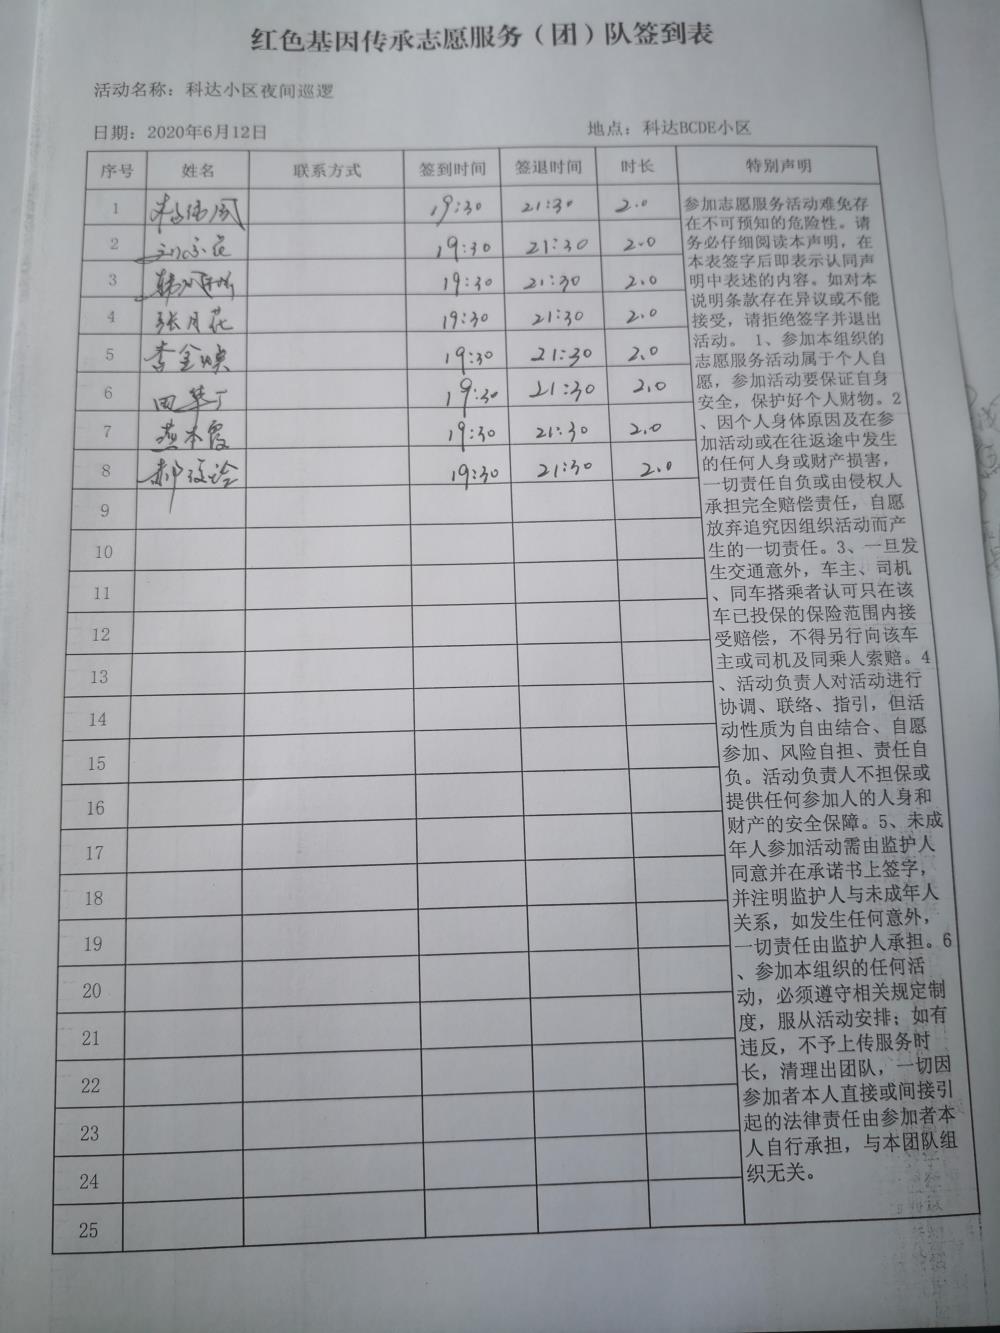 红色基因传承志愿服务（团）队签到表
活动名称：科达小区夜间巡逻
日期：2020年6月12日 地点：科达BCDE小区
序号 姓名 联系方式 签到时间 签退时间 时长 特别声明
1 19:30 21:30 2.0
2 19:30 21:30 2.0
3 19:30 21:30 2.0
4 张月花 19:30 21:30 2.0
5 李金焕 19:30 21:30 2.0
6 田 19:30 21:30 2.0
7 燕本霞 19:30 21:30 2.0
8 19:30 21:30 2.0
9
10
11
12
13
14
15
16
17
18
19
20
21
22
23
24
25
参加志愿服务活动难免存
在不可预知的危险性。请
务必仔细阅读本声明，在
本表签字后即表示认同声
明中表述的内容。如对本
说明条款存在异议或不能
接受，请拒绝签字并退出
活动。 1、参加本组织的
志愿服务活动属于个人自
愿，参加活动要保证自身
安全，保护好个人财物。2
、因个人身体原因及在参
加活动或在往返途中发生
的任何人身或财产损害，
一切责任自负或由侵权人
承担完全赔偿责任，自愿
放弃追究因组织活动而产
生的一切责任。3、一旦发
生交通意外，车主、司机
、同车搭乘者认可只在该
车已投保的保险范围内接
受赔偿，不得另行向该车
主或司机及同乘人索赔。4
、活动负责人对活动进行
协调、联络、指引，但活
动性质为自由结合、自愿
参加、风险自担、责任自
负。活动负责人不担保或
提供任何参加人的人身和
财产的安全保障。5、未成
年人参加活动需由监护人
同意并在承诺书上签字，
并注明监护人与未成年人
关系，如发生任何意外，
一切责任由监护人承担。6
、参加本组织的任何活
动，必须遵守相关规定制
度，服从活动安排；如有
违反，不予上传服务时
长，清理出团队，一切因
参加者本人直接或间接引
起的法律责任由参加者本
人自行承担，与本团队组
织无关。